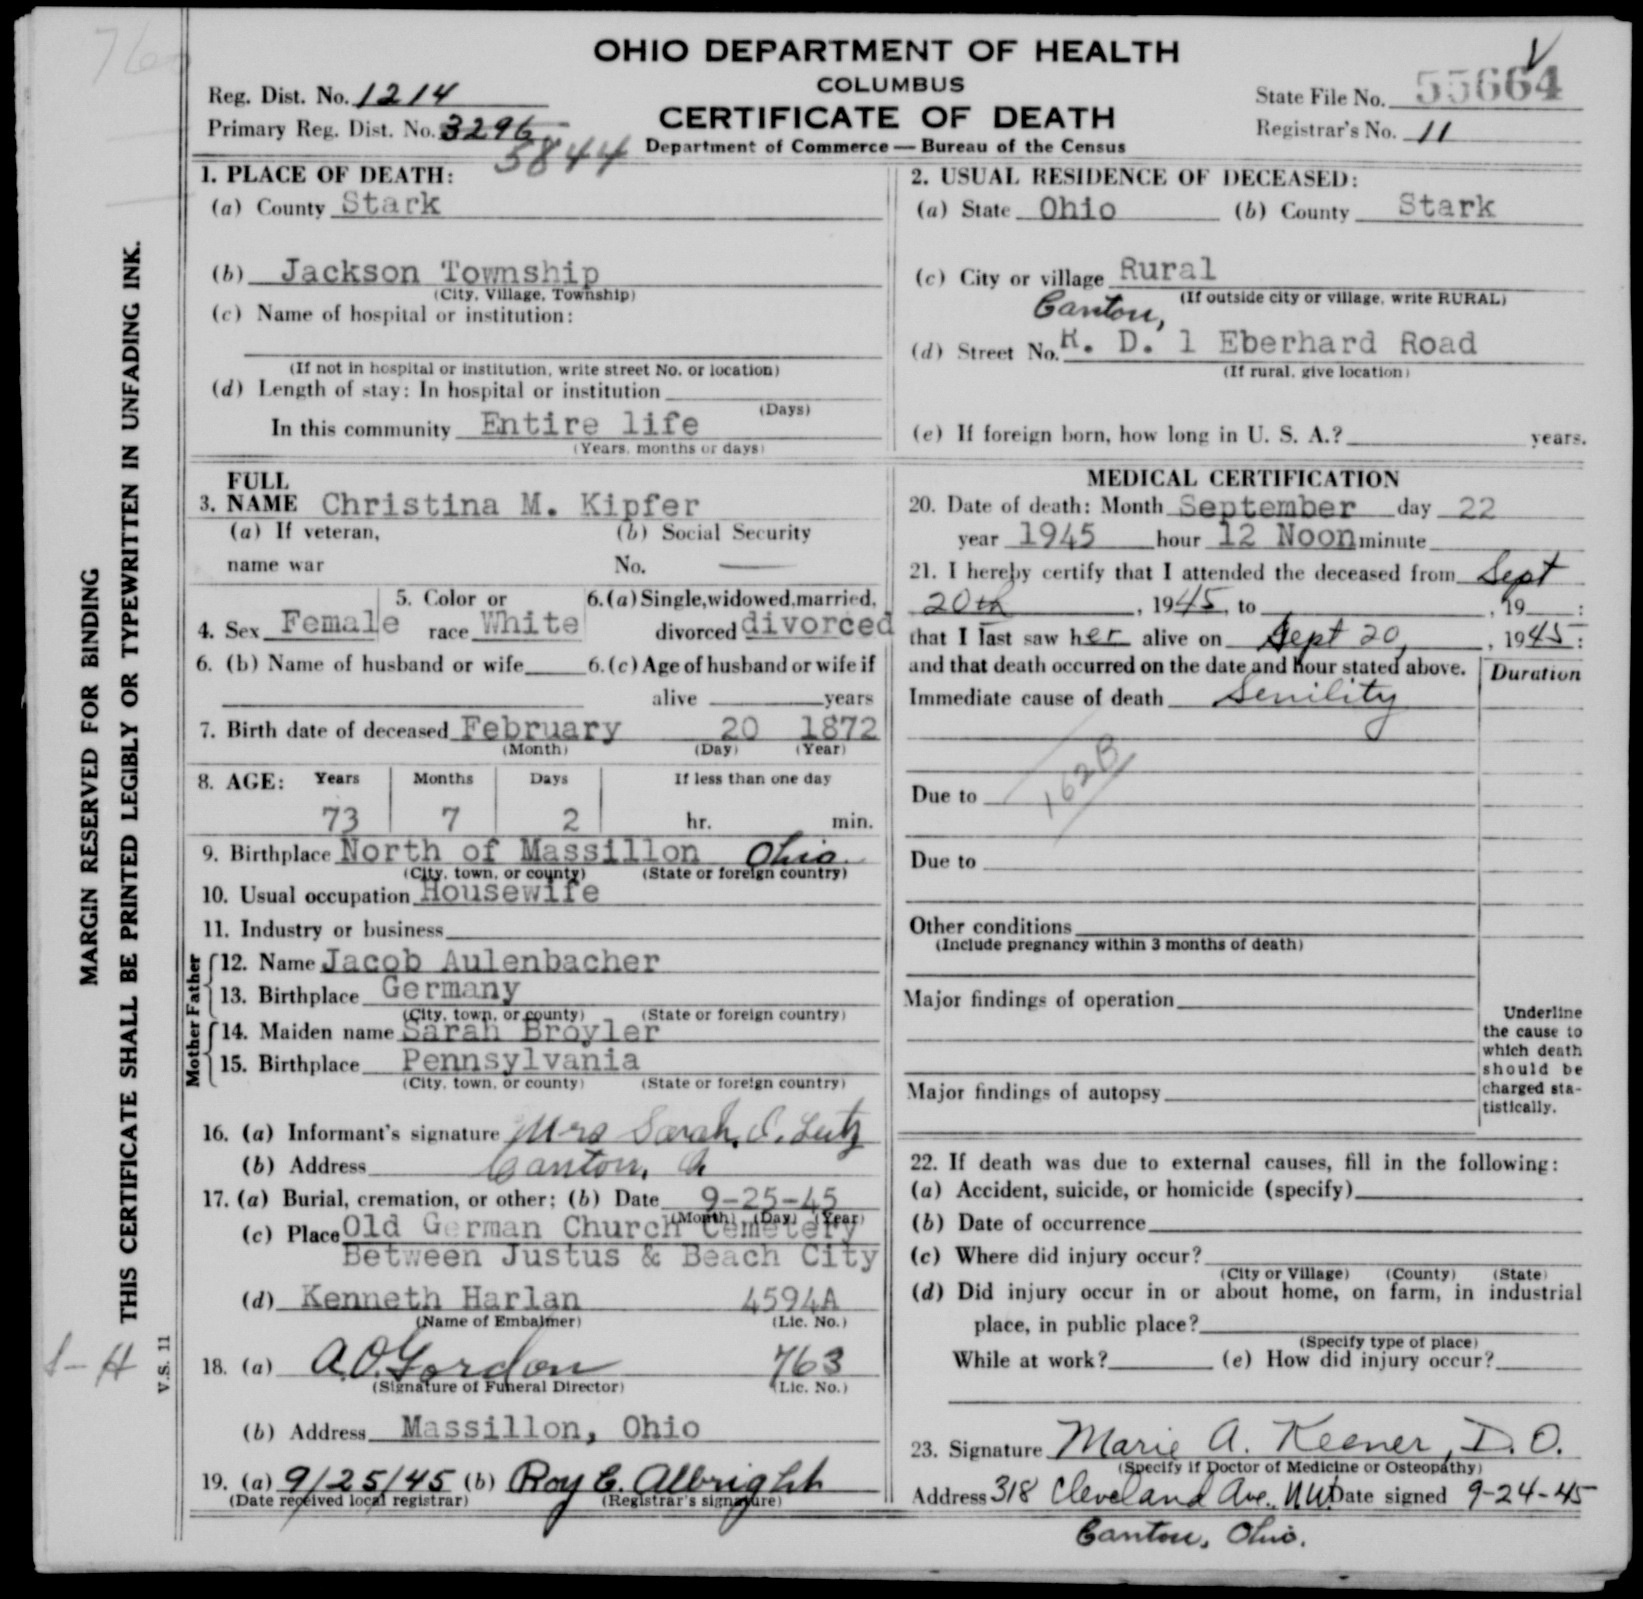 OHIO DEPARTMENT OF HEALTH
COLUMBUS
CERTIFICATE OF DEATH
Department of Commerce — Bureau of the Census
Reg. Dist. No. 1214
Primary Reg. Dist. No. 3296
5844
State File No. 55664
Registrar's No. 11
MARGIN RESERVED FOR BINDING
THIS CERTIFICATE SHALL BE PRINTED LEGIBLY OR TYPEWRITTEN IN UNFADING INK.
V.S. 11
1. PLACE OF DEATH:
(a) County Stark
(b) Jackson Township
(City, Village, Township)
(c) Name of hospital or institution:
(If not in hospital or institution, write street No. or location)
(d) Length of stay: In hospital or institution
(Days)
In this community Entire life
(Years, months or days)
2. USUAL RESIDENCE OF DECEASED:
(a) State Ohio (b) County Stark
(c) City or village Rural
(If outside city or village, write RURAL)
Canton,
(d) Street No. R. D. 1 Eberhard Road
(If rural, give location)
(e) If foreign born, how long in U. S. A.? years.
FULL
3. NAME Christina M. Kipfer
(a) If veteran, (b) Social Security
name war No. —
5. Color or 6.(a) Single, widowed, married,
4. Sex Female race White divorced divorced
6. (b) Name of husband or wife 6.(c) Age of husband or wife if
alive years
7. Birth date of deceased February 20 1872
(Month) (Day) (Year)
8. AGE: Years Months Days If less than one day
73 7 2 hr. min.
9. Birthplace North of Massillon Ohio.
(City, town, or county) (State or foreign country)
10. Usual occupation Housewife
11. Industry or business
Father
12. Name Jacob Aulenbacher
13. Birthplace Germany
(City, town, or county) (State or foreign country)
Mother
14. Maiden name Sarah Broyler
15. Birthplace Pennsylvania
(City, town, or county) (State or foreign country)
16. (a) Informant's signature Mrs Sarah
(b) Address Canton, O
17. (a) Burial, cremation, or other; (b) Date 9-25-45
(Month) (Day) (Year)
(c) Place Old German Church Cemetery
Between Justus & Beach City
(d) Kenneth Harlan 4594A
(Name of Embalmer) (Lic. No.)
18. (a) A.O. Gordon 763
(Signature of Funeral Director) (Lic. No.)
(b) Address Massillon, Ohio
19. (a) 9/25/45 (b) Roy C. Albright
(Date received local registrar) (Registrar's signature)
MEDICAL CERTIFICATION
20. Date of death: Month September day 22
year 1945 hour 12 Noon minute
21. I hereby certify that I attended the deceased from Sept
20th, 1945, to , 19 :
that I last saw her alive on Sept 20, , 1945:
and that death occurred on the date and hour stated above.
Duration
Immediate cause of death Senility
162B
Due to
Due to
Other conditions
(Include pregnancy within 3 months of death)
Major findings of operation
Major findings of autopsy
Underline
the cause to
which death
should be
charged sta-
tistically.
22. If death was due to external causes, fill in the following:
(a) Accident, suicide, or homicide (specify)
(b) Date of occurrence
(c) Where did injury occur?
(City or Village) (County) (State)
(d) Did injury occur in or about home, on farm, in industrial
place, in public place?
(Specify type of place)
While at work? (e) How did injury occur?
23. Signature Marie A. Keener, D.O.
(Specify if Doctor of Medicine or Osteopathy)
Address 318 Cleveland Ave. NW. Date signed 9-24-45
Canton, Ohio.